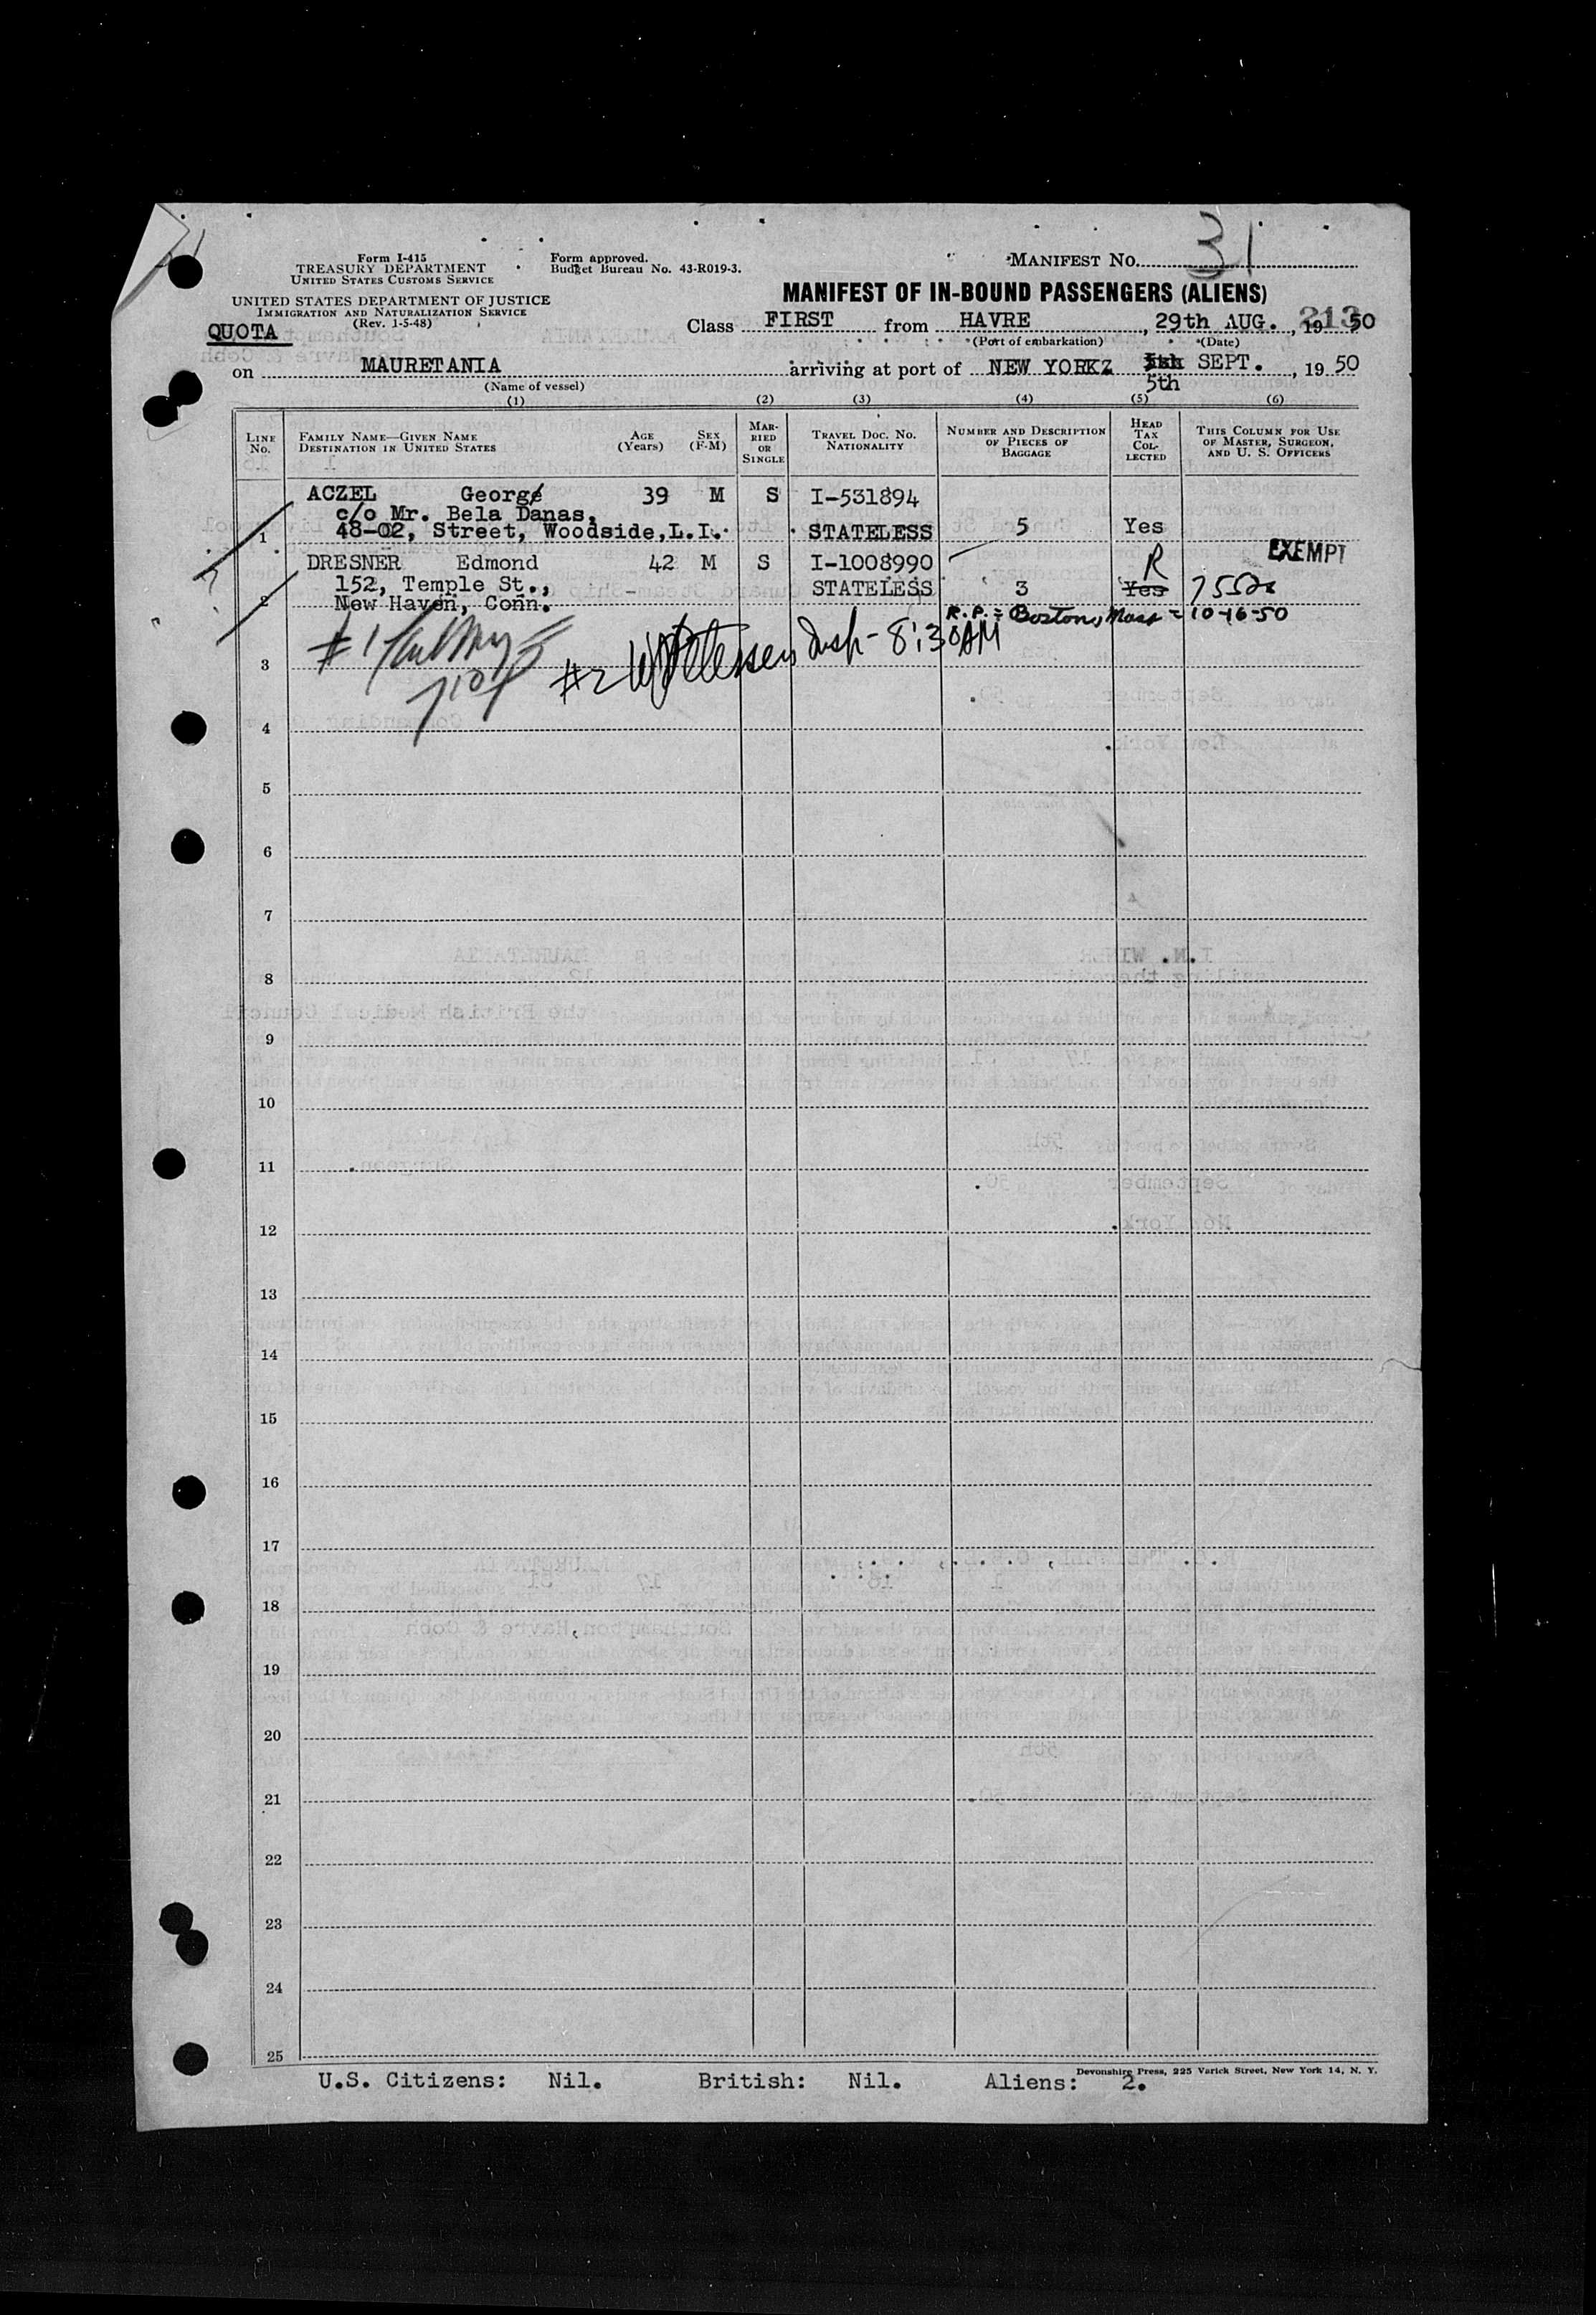 31
Form I-415
TREASURY DEPARTMENT
UNITED STATES CUSTOMS SERVICE
Form approved.
Budget Bureau No. 43-R019-3.
MANIFEST No.
UNITED STATES DEPARTMENT OF JUSTICE
IMMIGRATION AND NATURALIZATION SERVICE
(Rev. 1-5-48)
MANIFEST OF IN-BOUND PASSENGERS (ALIENS)
213
QUOTA
Class FIRST from HAVRE, 29th AUG., 1950
(Port of embarkation) (Date)
on MAURETANIA arriving at port of NEW YORKZ 5th SEPT., 1950
(Name of vessel) 5th
(1) (2) (3) (4) (5) (6)
LINE No. FAMILY NAME—GIVEN NAME DESTINATION IN UNITED STATES AGE (Years) SEX (F-M) MARRIED OR SINGLE TRAVEL DOC. NO. NATIONALITY NUMBER AND DESCRIPTION OF PIECES OF BAGGAGE HEAD TAX COLLECTED THIS COLUMN FOR USE OF MASTER, SURGEON, AND U. S. OFFICERS
ACZEL George 39 M S I-531894
c/o Mr. Bela Danas,
1 48-02, Street, Woodside,L.I. STATELESS 5 Yes
DRESNER Edmond 42 M S I-1008990 R EXEMPT
152, Temple St., STATELESS 3 Yes
2 New Haven, Conn.
R.P. = Boston, Mass = 10-16-50
#1
#2 8:30AM
3
4
5
6
7
8
9
10
11
12
13
14
15
16
17
18
19
20
21
22
23
24
25
Devonshire Press, 225 Varick Street, New York 14, N. Y.
U.S. Citizens: Nil. British: Nil. Aliens: 2.